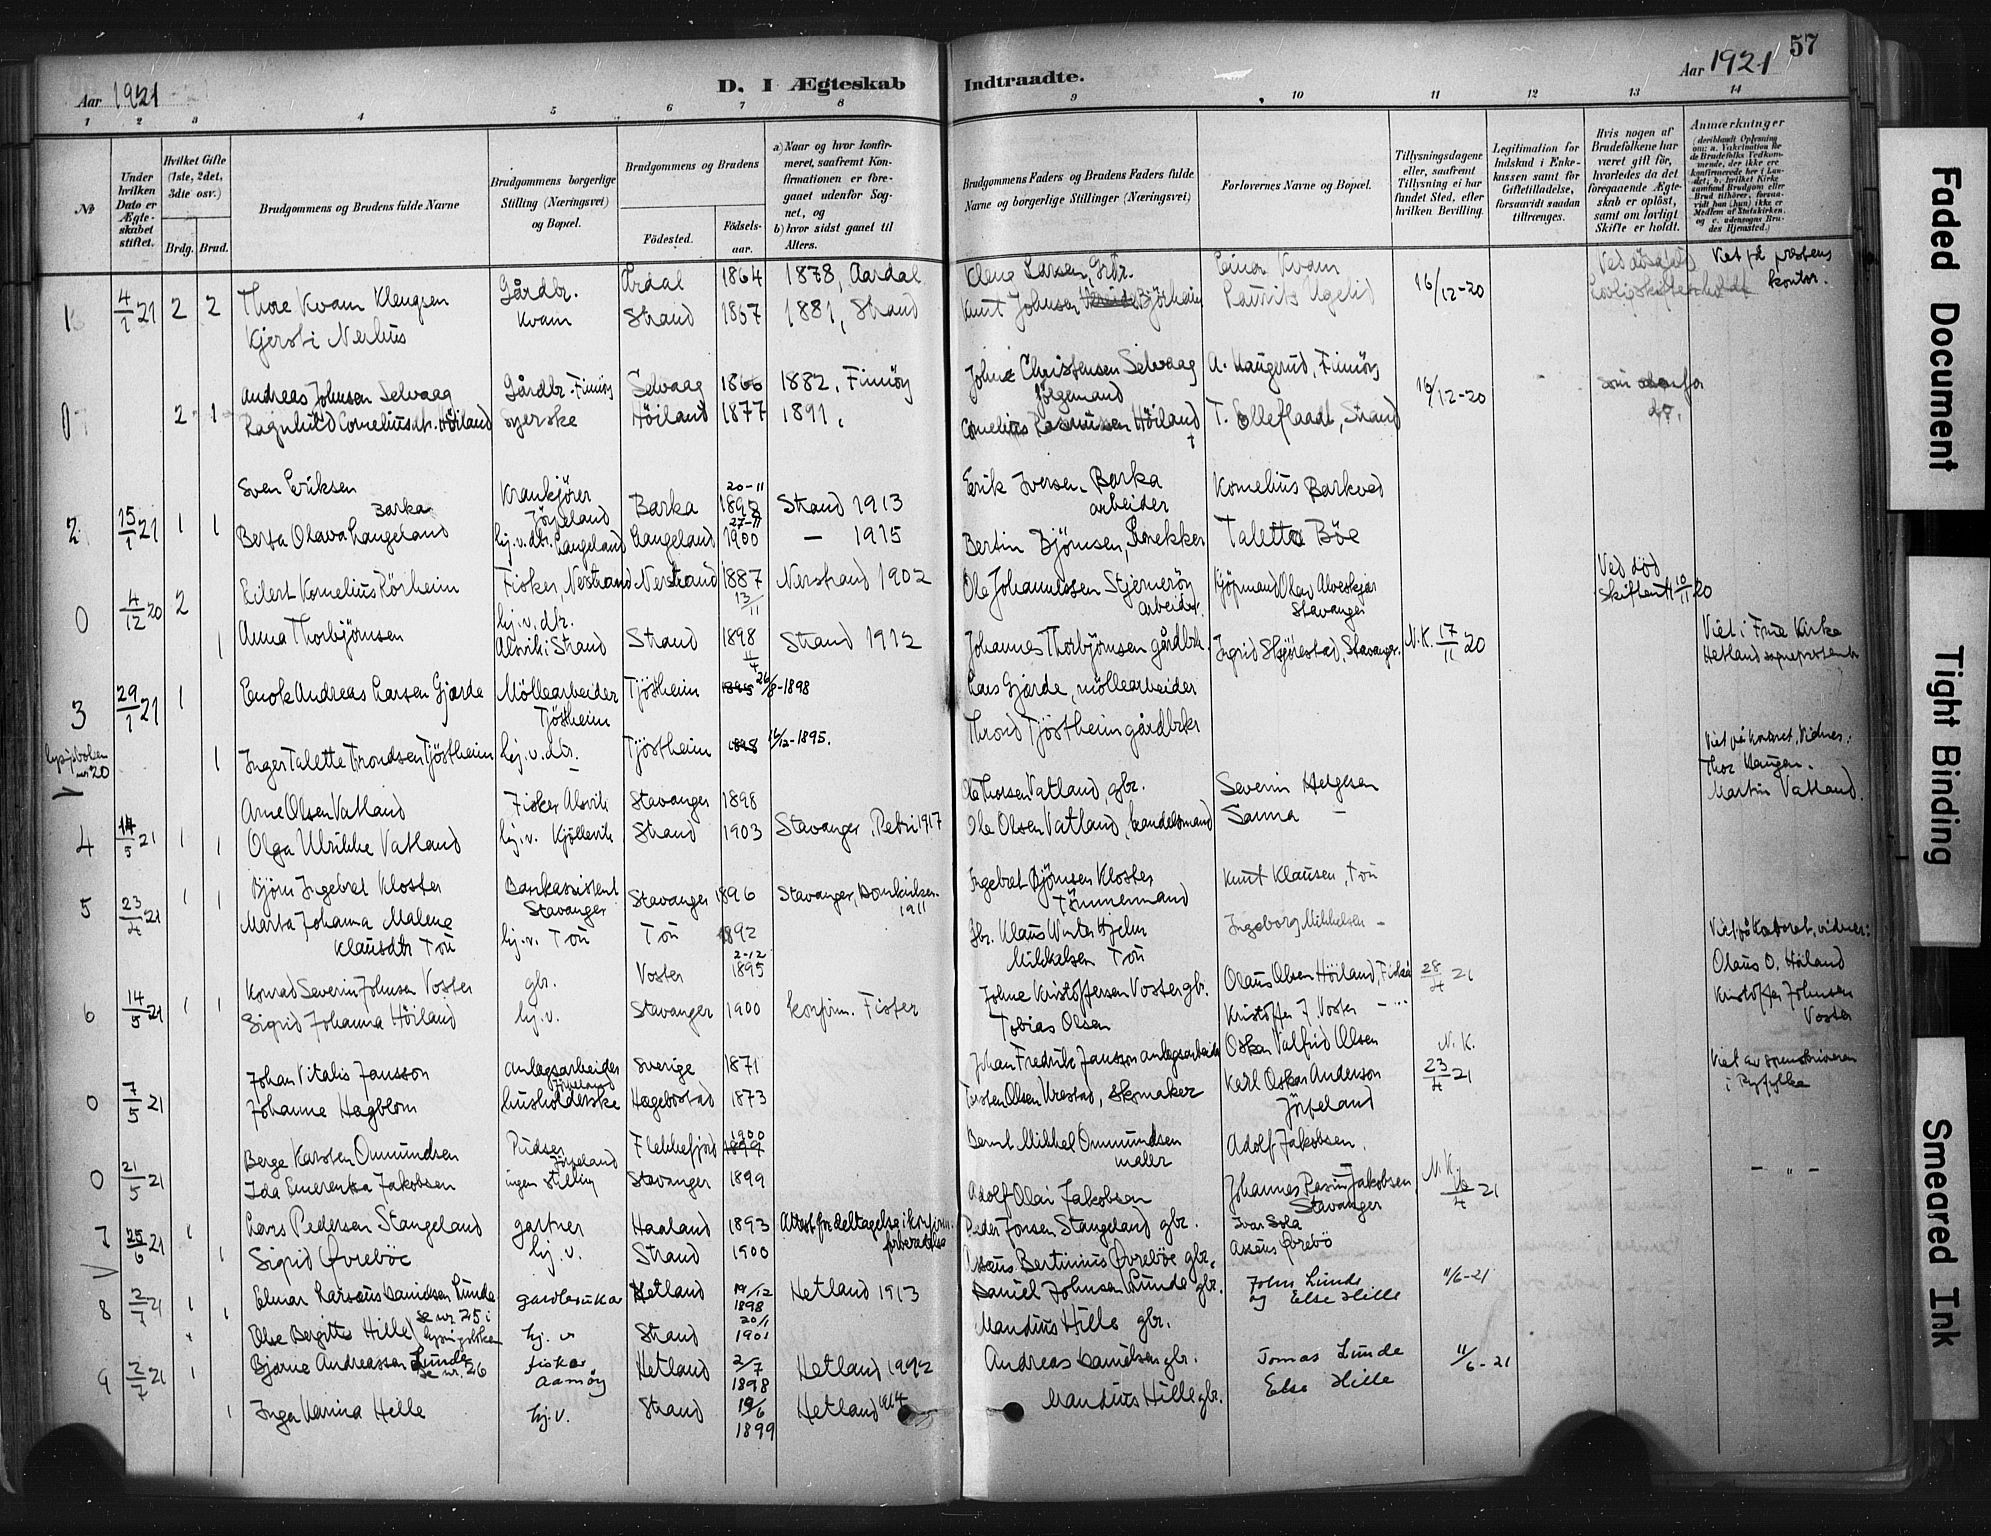 57
Aar 1921
D. I Ægteskab Indtraadte.
Aar 1921
1 2 3 4 5 6 7 8 9 10 11 12 13 14
№
Under hvilken Dato er Ægteskabet stiftet.
Hvilket Gifte (1ste, 2det, 3die osv.)
Brdg. Brud.
Brudgommens og Brudens fulde Navne
Brudgommens borgerlige Stilling (Næringsvei) og Bopæl.
Brudgommens og Brudens
Födested. Födselsaar.
a) Naar og hvor konfirmeret, saafremt Konfirmationen er foregaaet udenfor Sognet, og
b) hvor sidst gaaet til Alters.
Brudgommens Faders og Brudens Faders fulde Navne og borgerlige Stillinger (Næringsvei)
Forlovernes Navne og Bopæl.
Tillysningsdagene eller, saafremt Tillysning ei har fundet Sted, efter hvilken Bevilling.
Legitimation for Indskud i Enkekassen samt for Giftetilladelse, forsaavidt saadan tiltrænges.
Hvis nogen af Brudefolkene har været gift för, hvorledes da det foregaaende Ægteskab er oplöst, samt om lovligt Skifte er holdt.
Anmærkninger
1 4/1 21 2 2 Thore Kvam Klengsen Gårdbr. Kvam Årdal 1864 1878, Aardal Kleng Larsen, Grbr. Einar Kvam 16/12-20 Viet på prestens kontor.
Kjersti Nerhus Strand 1867 1881, Strand Knut Johnsen Björheim Laurits Ugelid
0 2 1 Andreas Johnsen Selvaag Gårdbr. Finnöy Selvaag 1866 1882, Finnöy Johne Christensen Selvaag A. Haugerud, Finnöy 16/12-20
Ragnhild Corneliusdtr. Höiland syerske Höiland 1877 1891, Cornelius Rasmussen Höiland T. Ellefladt, Strand
2 15/1 21 1 1 Sven Eriksen Barka Krankjörer Jörpeland Barka 20-11 1895 Strand 1913 Erik Iversen Barka arbeider Kornelius Barkved
Berta Olava Langeland hj.v.dtr. Langeland Langeland 27-11 1900 — 1915 Bertin Björnsen, Snekker Taletta Böe
0 4/12 20 2 Eilert Kornelius Röiheim Fisker, Nerstrand Nerstrand 1887 13/11 Nerstrand 1902 Ole Johannessen Stjerneröy arbeider Kjöpmand Olav Alveskjær Stavanger Ved död
1 Anna Thorbjörnsen hj.v.dtr. Alsvik i Strand Strand 1898 11/4 Strand 1912 Johannes Thorbjörnsen gårdbr. Ingrid Skjörestad, Stavanger. N.K. 17/11 20 Viet i Frue Kirke Hetland sogneprestembede
3 29/1 21 1 Enok Andreas Larsen Gjærde Möllearbeider Tjöstheim Tjöstheim 26/8-1898 Lars Gjærde, möllearbeider
lysn.boken nr 20 1 Inger Talette Trondsen Tjöstheim hj.v.dtr. Tjöstheim 16/12-1895. Thrond Tjöstheim gårdbrk Viet på kontoret, Vidner: Thor Haugen. Martin Vatland.
4 14/5 21 1 1 Arne Olsen Vatland Fisker Alsvik Stavanger 1898 Ole Thorsen Vatland, gbr. Severin Helgesen
Olga Ulrikke Vatland hj.v. Kjöllevik Strand 1903 Stavanger, Petri 1917 Ole Olsen Vatland, handelsmand Sanna —
5 23/4 21 1 1 Björn Ingebret Kloster Bankassistent Stavanger Stavanger 1896 Stavanger, Domkirken 1911 Ingebret Björnsen Kloster Tömmermand Knut Klausen, Tou
Marta Johanna Malene Klausdtr Tou hj.v. Tou Tou 1892 gbr. Klaus Winter Hjelm Mikkelsen Tou Ingeborg Mikkelsen —
6 14/5 21 1 1 Konrad Severin Johnsen Voster gbr. Voster 2-12 1895 Johne Kristoffersen Voster gbr. Olaus Olsen Höiland, Fiskå 28/4 21 Viet på kontoret, vidner: Olaus O. Höiland
Sigrid Johanna Höiland hj.v. Stavanger 1900 konfirm. Fister Tobias Olsen Kristoffer J. Voster Kristoffer Johnsen Voster
0 7/5 21 Johan Vitalis Jansson anlegsarbeider Jörpeland Sverige 1871 Johan Fredrik Jansson anlegsarbeider Oskar Valfrid Olsen N.K. 23/4 21 Viet av sorenskriveren i Ryfylke
Johanne Hagblom husholderske Hægebostad 1873 Torsten Olsen Vrestad, skomaker Karl Oskar Anderson Jörpeland
0 21/5 21 Berge Karsten Ommundsen Pudser Jörpeland Flekkefjord 1900 Bernt Mikkel Ommundsen maler Adolf Jakobsen.
Ida Emerentsa Jakobsen ingen stilling Stavanger 1899 Adolf Olai Jakobsen Johannes Rasm. Jakobsen, Stavanger N.K. 16/4 21 — „ —
7 25/6 21 1 Lars Pedersen Stangeland gartner Haaland 1893 Attest for deltagelse i konfirm. forberedelse Peder Jonsen Stangeland gbr. Ivar Sola
1 Sigrid Övreböe hj.v. Strand 1900 Asseus Bertinius Övreböe gbr. Asseus Övrebö
8 2/7 21 1 1 Elmar Larseus Danielsen Lunde se nr. 25 i lysn.boken gardbruker Hetland 19/12 1898 Hetland 1913 Daniel Johnsen Lunde gbr. John Lunde og Else Hille 11/6-21
Else Bergitte Hille hj.v Strand 20/1 1901 Mandius Hille gbr.
9 2/7 21 1 Bjarne Andreassen Lunde se nr. 26 fisker Aamöy Hetland 2/7 1898 Hetland 1992 Andreas Danielsen gbr. Tomas Lunde 11/6-21
1 Inga Karina Hille hj.v. Strand 19/6 1899 Hetland 1914 Mandius Hille gbr. Else Hille
Faded Document
Tight Binding
Smeared Ink